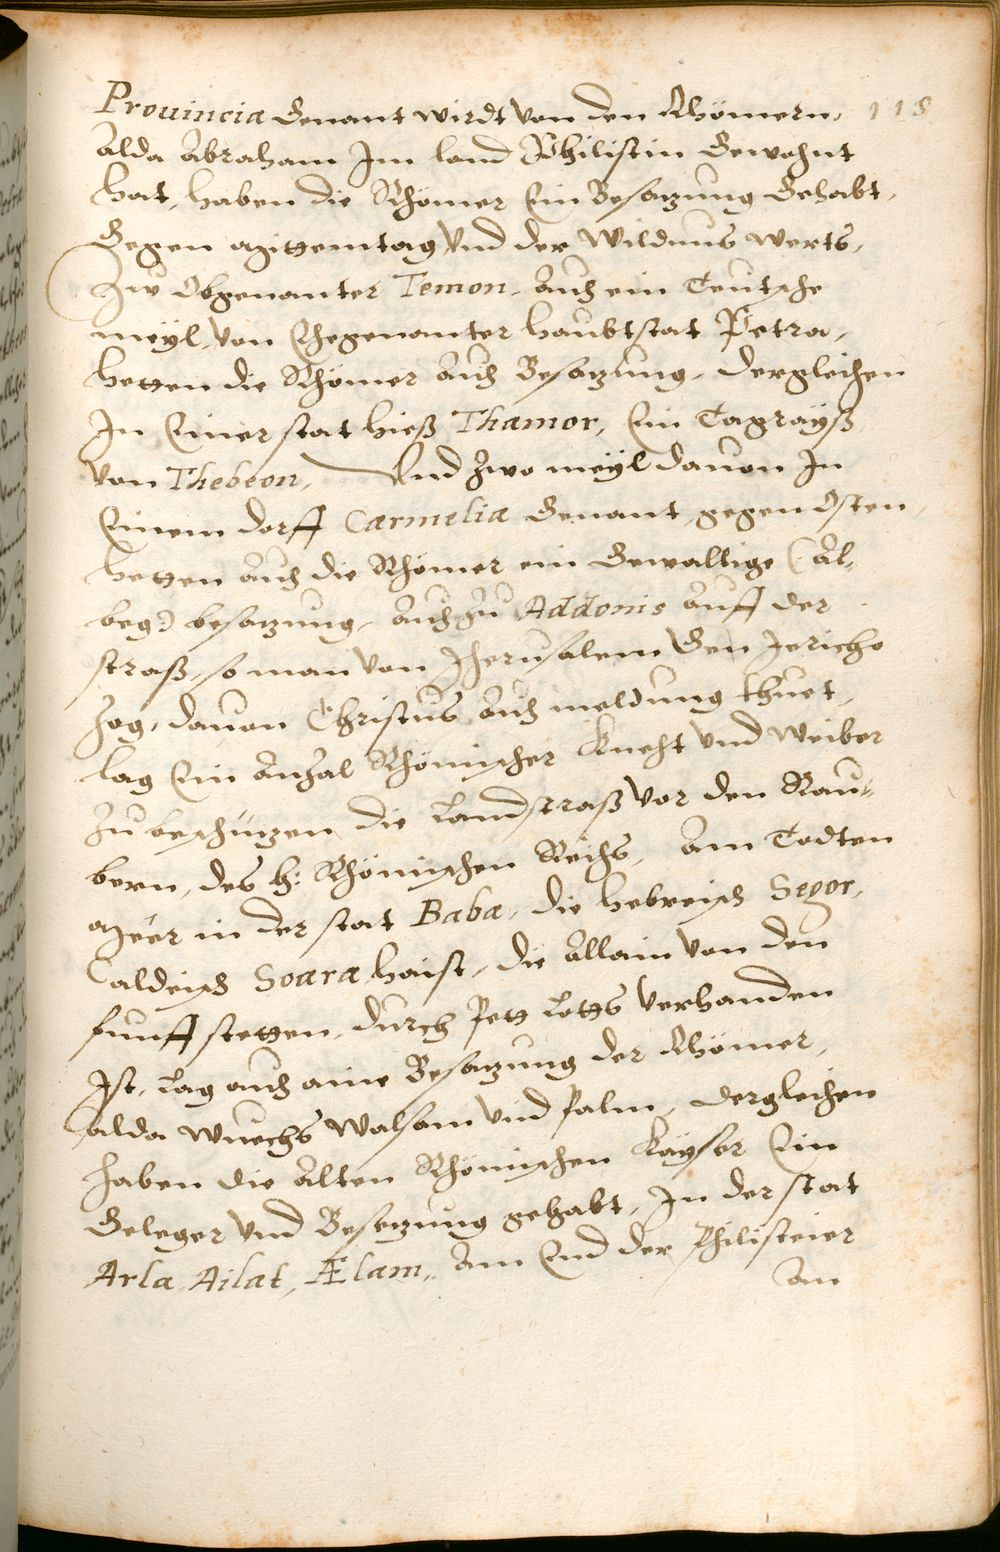 115
Prouincia Genant wirdt von den Rhömern,
Alda Abraham Im land Philistin Gewohnt
hat, haben die Rhömer Ein Besazung Gehabt,
Gegen mittemtag Vnd der Wildnus werts,
Zw Obgenanter Temon, Auch ein Teutsche
meyl, von Ehegenanter haubtstat Petra,
hetten die Rhömer Auch Besazung, dergleichen
In Einer stat hieß Thamor, Ein Tagrayß
von Thebeon, Vnd zwo meyl dauon In
Einem dorff Carmelia Genant, gegen Osten,
hetten auch die Rhömer ein Gewaltige (Al-
beg) besazung, auch zu Addonis auff der
straß, so man von Jherusalem Gen Jericho
zog, dauon Christus auch meldung thuet,
lag Ein Anzal Rhömischer Knecht vnd Weiber
zu beschüzen die Landstraß vor den Rau-
bern, des h: Rhömischen Reichs, Am Todten
Meer in der stat Baba, die hebreisch Segor,
Caldeisch Soara haist, die Allain von den
funff stetten, durch Pett Lotts verhanden
Ist, Lag auch aine Besazung der Rhömer,
alda wuechs Walsam vnd Palm, dergleichen
haben die Alten Rhömischen Kayser Ein
Geleger vnd Besezung gehabt, In der stat
Arla, Ailat, Ælam, Am End der Philisteier
An